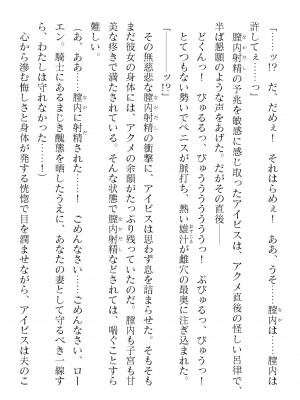 「――ッ!? だ、だめぇ！　それはらめぇ！　ああ、うそ……膣内は……膣内は
許してぇ……っ」
膣内射精の予兆を敏感に感じ取ったアイビスは、アクメ直後の怪しい呂律で、
半ば懇願のような声をあげた。だがその直後――
どくんっ！　びゅるるっ、びゅうううううううっ！　ぶびゅるっ、びゅうっ！
とてつもない勢いでペニスが脈打ち、熱い雄汁が雌穴の最奥に注ぎ込まれた。
「――――ッ!?」
その無慈悲な膣内射精の衝撃に、アイビスは思わず息を詰まらせた。そもそも
まだ彼女の身体には、アクメの余韻がたっぷり残っていたのだ。膣内も子宮も甘
美な疼きで満たされている。そんな状態で膣内射精などされては、喘ぐことすら
難しい。
「あ、ああ……膣内に射精された……！　ごめんなさい、ごめんなさい、ロー
エン。騎士にあるまじき醜態を晒したうえに、あなたの妻として守るべき一線す
ら、わたしは守れなかった……！」
心から滲む悔しさと身体が発する恍惚で目を潤ませながら、アイビスは夫のこ